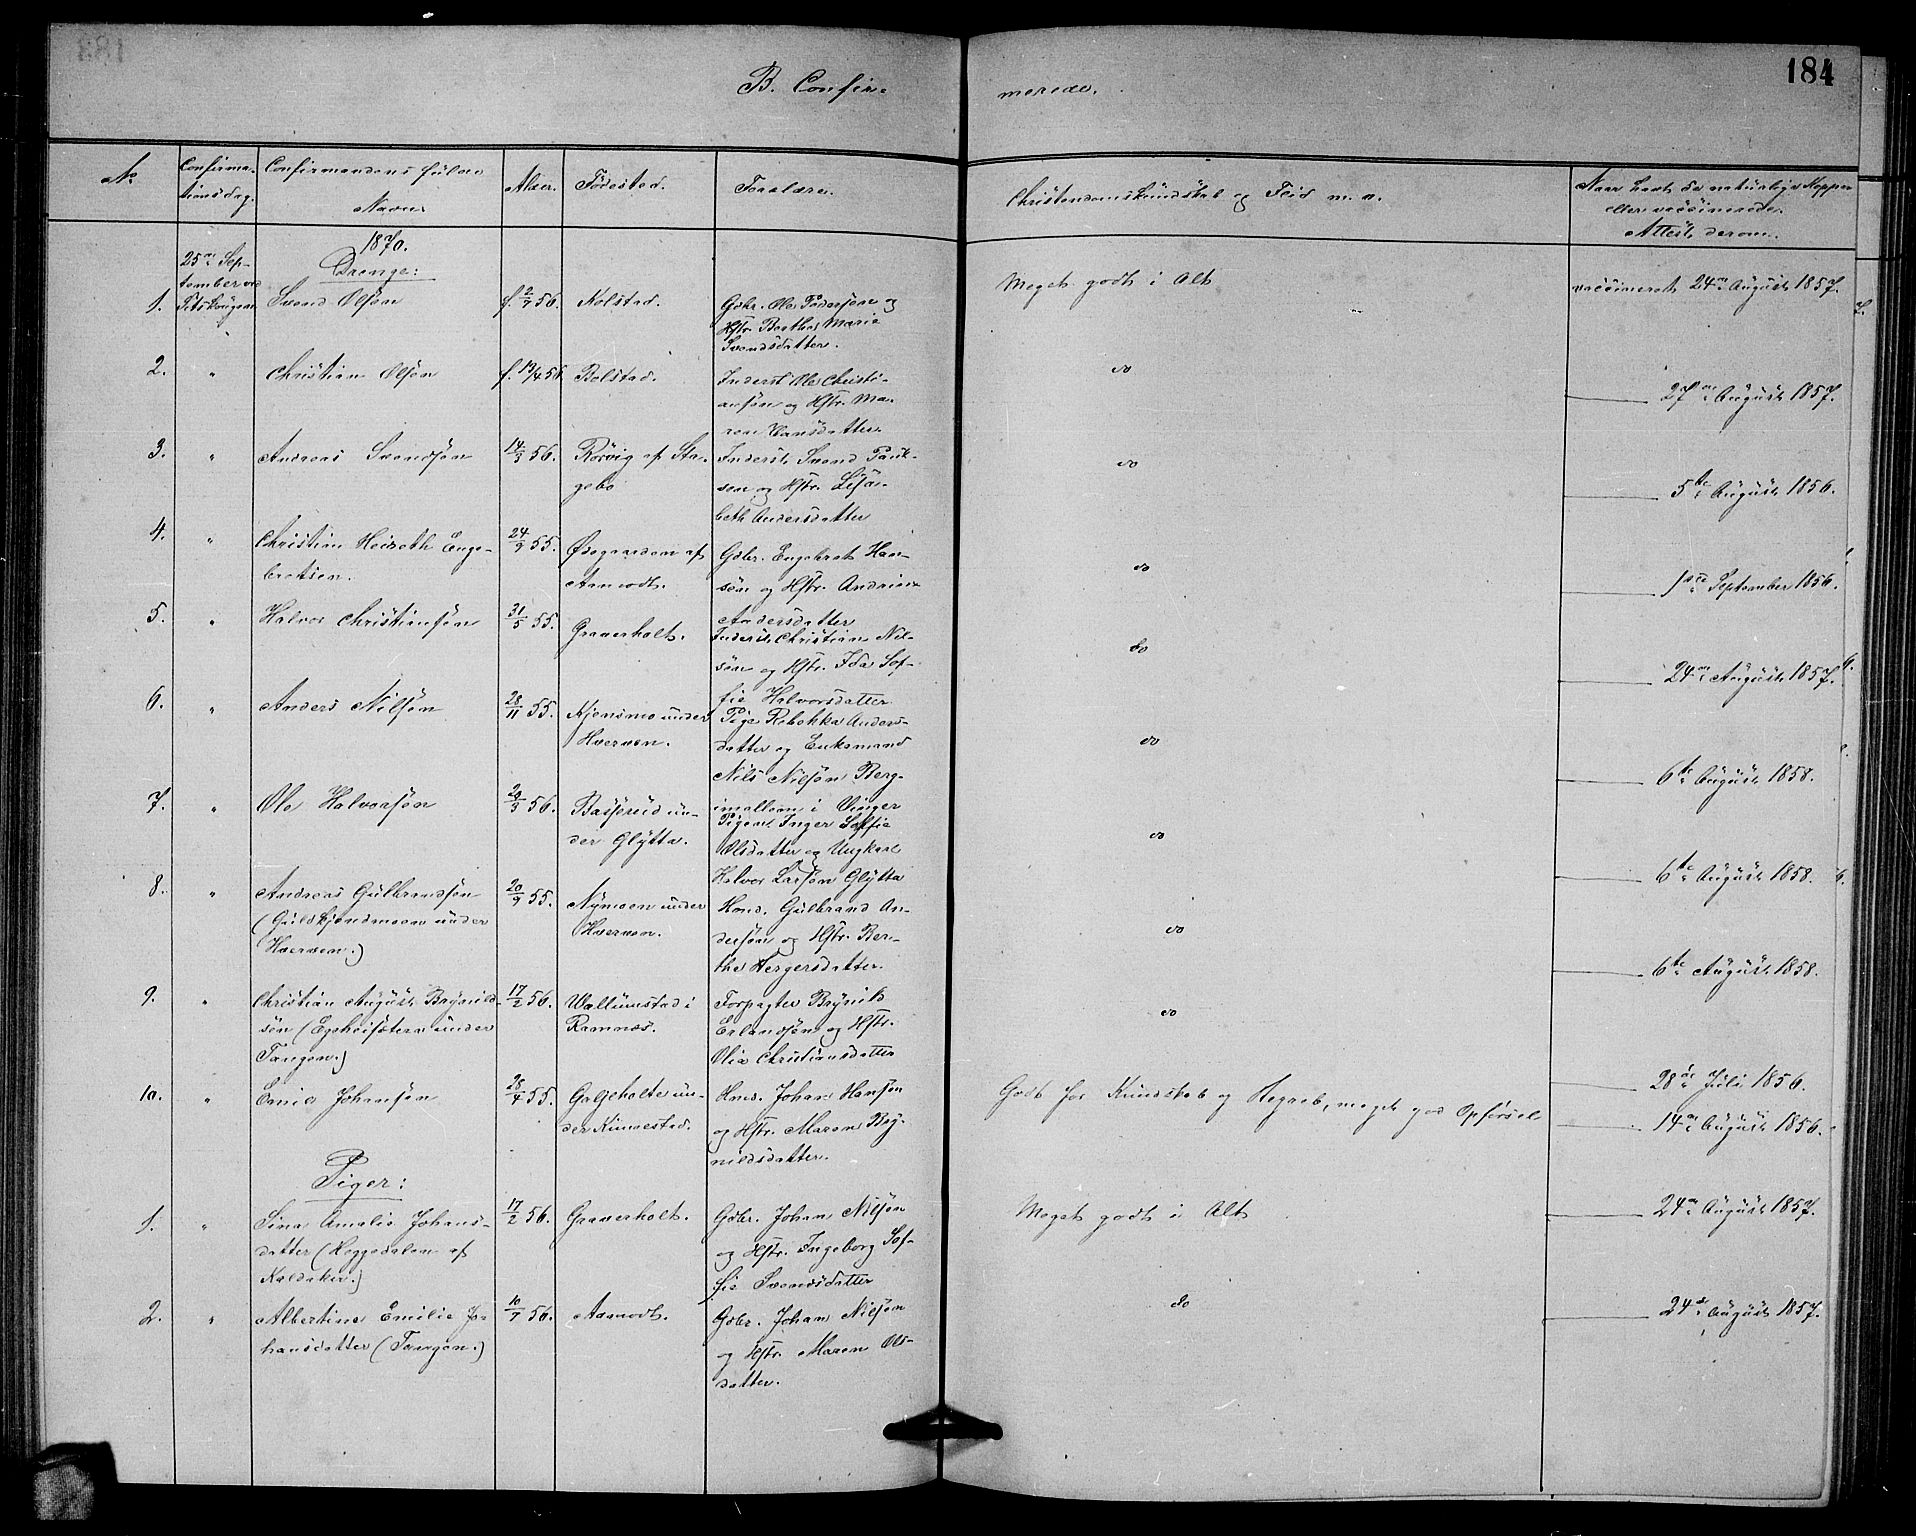 184
B. Confir-
merede.
No
Confirma-
tionsdag.
Confirmandens fulde
Navn.
Alder.
Fødested.
Forældre.
Christendomskundskab og Flid m. v.
Naar havt de naturlige Kopper
eller vaccinerede.
Attest derom.
1870.
Drenge:
25de Sep-
tember ved
1.
Svend Olsøn
f. 2/7 56.
Kolstad.
Gdbr. Ole Pedersøn og
Hstr. Berthe Marie
Svendsdatter.
Meget godt i Alt
vaccineret 24de August 1857.
2.
"
Christian Olsøn
f. 13/4 56
Bolstad.
Inderst Ole Christi-
ansøn og Hstr. Ma-
ren Hansdatter.
do
27de August 1857.
3.
"
Andreas Svendsøn
14/3 56.
Rørvig af Sta-
gebo
Inderst Svend Paul-
sen og Hstr. Lisa-
beth Andersdatter
do
5te August 1856.
4.
"
Christian Heireth Enge-
bretsen.
24/9 55.
Ødegaarden af
Aamodt.
Gdbr. Engebret Han-
søn og Hstr. Andrine
Andersdatter
do
1ste September 1856.
5.
"
Halvor Christiansøn
31/5 55.
Graverholt.
Inderst Christian Nil-
søn og Hstr. Ida Sof-
fie Halvorsdatter
do
24de August 1857.
6.
"
Anders Nilsøn
28/11 55.
Kjensmo under
Hverven.
Pige Rebekka Anders-
datter og Enkemand
Nils Nilsøn Berg-
imellem i Vinger
do
6te August 1858.
7.
"
Ole Halvorsøn
20/3 56.
Basserud un-
der Glytta.
Pigen Inger Soffie
Olsdatter og Ungkarl
Halvor Larsøn Glytta
do
6te August 1858.
8.
"
Andreas Gulbrandsøn
(Guldkjendmoen under
Hverven.)
20/9 55.
Nymoen under
Hverven.
Hmd. Gulbrand An-
dersøn og Hstr. Ber-
the Hergersdatter.
do
6te August 1858.
9.
"
Christian August Brynild-
søn (Egsheisætern under
Tangen.)
17/2 56.
Vallumstad i
Ramnæs.
Forpagter Brynild
Erlandsøn og Hstr.
Olia Christiansdatter
do
28de Juli 1856.
10.
"
Emil Johansøn
28/4 55.
Galgeholte un-
der Kimestad.
Hmd. Johan Hansøn
og Hstr. Maren Bry-
nildsdatter.
Godt for Kundskab og Begreb, meget god Opførsel
14de August 1856.
Piger:
1.
"
Sina Amalie Johans-
datter (Heggedalen af
Kaldaker.)
17/2 56.
Graverholt.
Gdbr. Johan Nilsøn
og Hstr. Ingeborg Sof-
fie Svendsdatter
Meget godt i Alt
24de August 1857.
2.
"
Albertine Emilie Jo-
hansdatter (Tangen.)
10/7 56.
Aamodt.
Gdbr. Johan Nilsøn
og Hstr. Maren Ols-
datter.
do
24de August 1857.